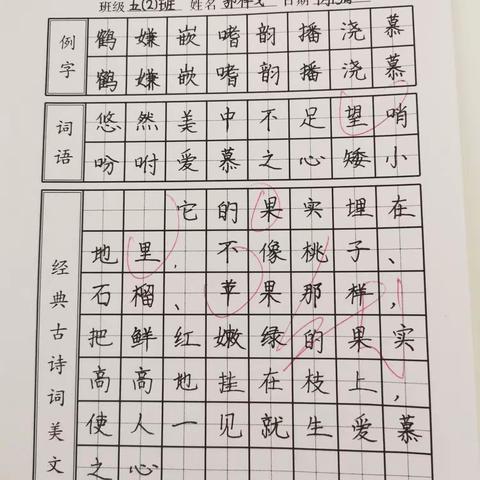 班级 五(2)班 姓名 日期
例字
鹤嫌嵌嗜韵播浇慕
鹤嫌嵌嗜韵播浇慕
词语
悠然美中不足望哨
吩咐爱慕之心矮小
经典古诗词美文
它的果实埋在
地里，不像桃子、
石榴、苹果那样，
把鲜红嫩绿的果实
高高地挂在枝上，
使人一见就生爱慕
之心